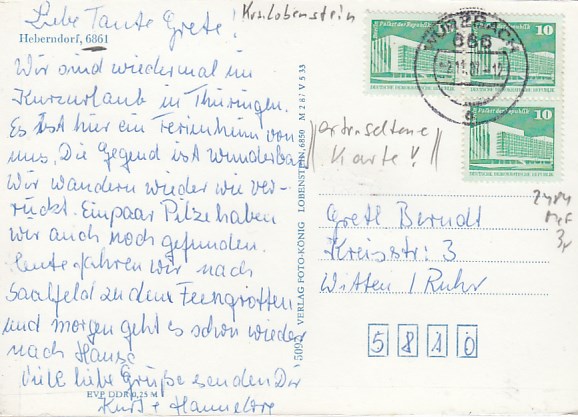 Liebe Tante Grete!
Krs. Lobenstein
Heberndorf, 6861
Wir sind wiedermal im
Kurzurlaub in Thüringen.
Es ist hier ein Ferienheim von
uns. Die Gegend ist wunderbar
Wir wandern wieder wie ver-
rückt. Einpaar Pilze haben
wir auch noch gefunden.
heute fahren wir nach
Saalfeld zu den Feengrotten
und morgen geht es schon wieder
nach Hause
Viele liebe Grüße senden Dir
Kurt + Hannelore
EVP DDR 0,25 M
VERLAG FOTO-KÖNIG LOBENSTEIN, 6850 M 2 87 V 5 33
WURZBACH
686
Palast der Republik
10
DEUTSCHE DEMOKRATISCHE REPUBLIK
Palast der Republik
10
DEUTSCHE DEMOKRATISCHE REPUBLIK
Palast der Republik
10
DEUTSCHE DEMOKRATISCHE REPUBLIK
Karte!
Gretl Berndt
Kreisstr: 3
Witten / Ruhr
5810